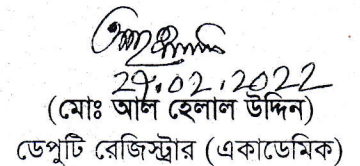 27.02.2022
(মোঃ আল হেলাল উদ্দিন)
ডেপুটি রেজিস্ট্রার (একাডেমিক)